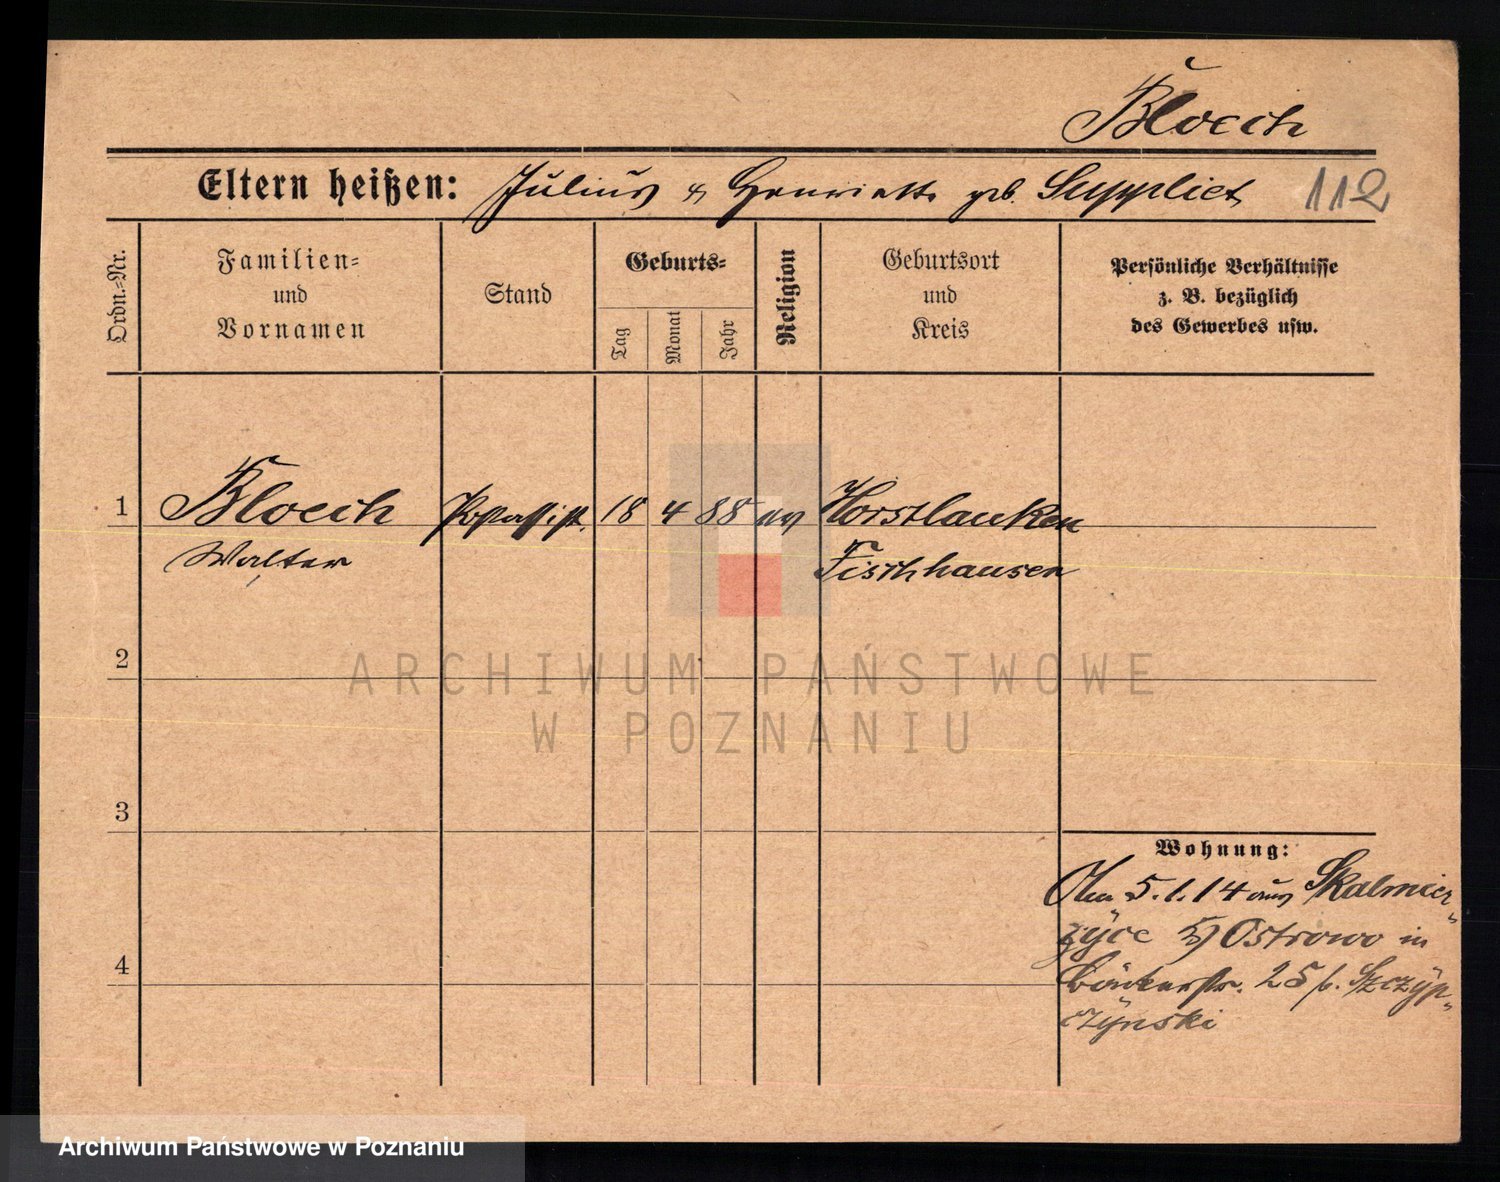 Bloech
Eltern heißen: Julius & Henriette geb. Suppliet 112
Ordn.-Nr.
Familien-
und
Vornamen
Stand
Geburts-
Tag
Monat
Jahr
Religion
Geburtsort
und
Kreis
Persönliche Verhältnisse
z. B. bezüglich
des Gewerbes usw.
1 Bloech Postassist. 18 4 88 ev Horstlauken
Walter Fischhausen
2
ARCHIWUM PAŃSTWOWE
W POZNANIU
3
Wohnung:
5.1.14 aus Skalmier-
zyce Ostrowo in
4
25 b. Szczyp-
czynski
Archiwum Państwowe w Poznaniu